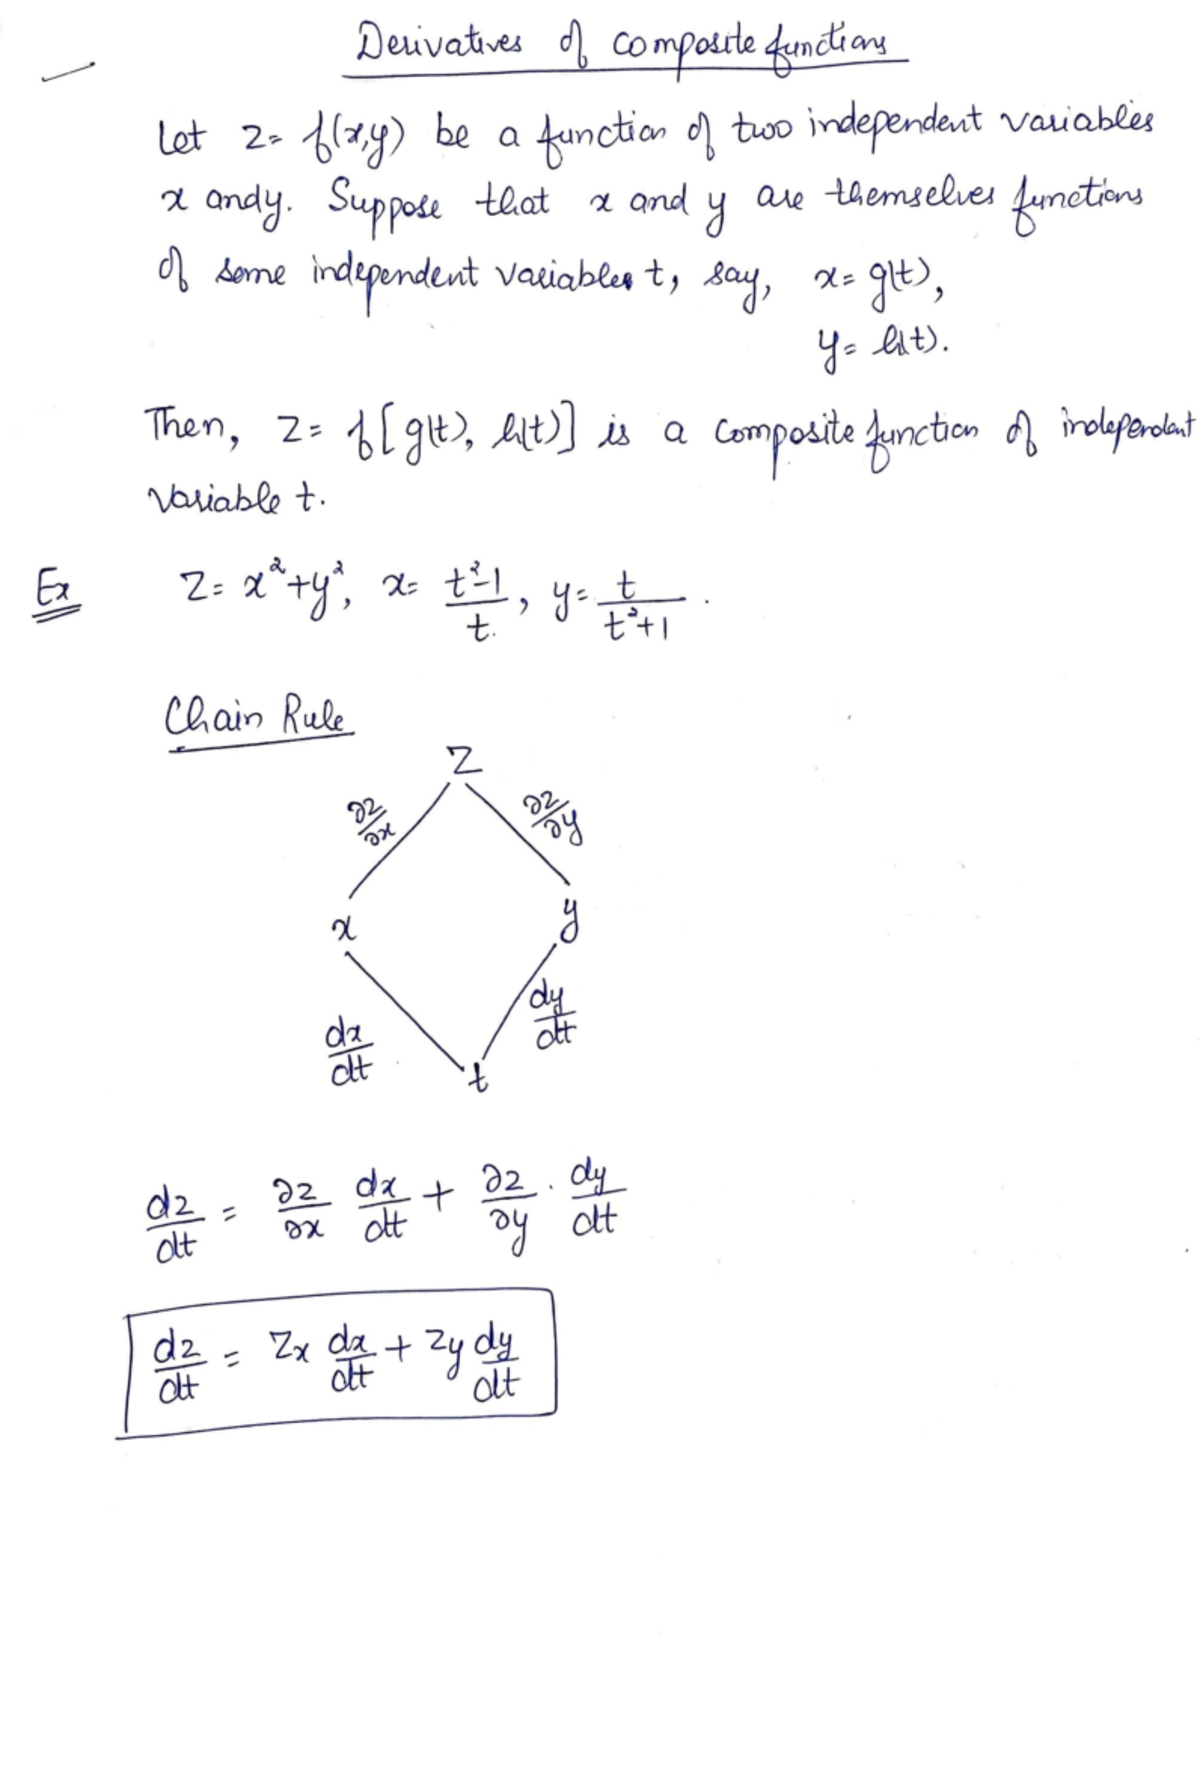 Derivatives of composite functions
Let z = f(x,y) be a function of two independent variables
x and y. Suppose that x and y are themselves functions
of some independent variables t, say, x = g(t),
y = h(t).
Then, z = f[g(t), h(t)] is a composite function of independent
variable t.
Ex z = x²+y², x = (t²-1)/t, y = t/(t²+1).
Chain Rule
z
∂z/∂x ∂z/∂y
x y
dx/dt dy/dt
t
dz/dt = ∂z/∂x dx/dt + ∂z/∂y · dy/dt
dz/dt = Zx dx/dt + Zy dy/dt